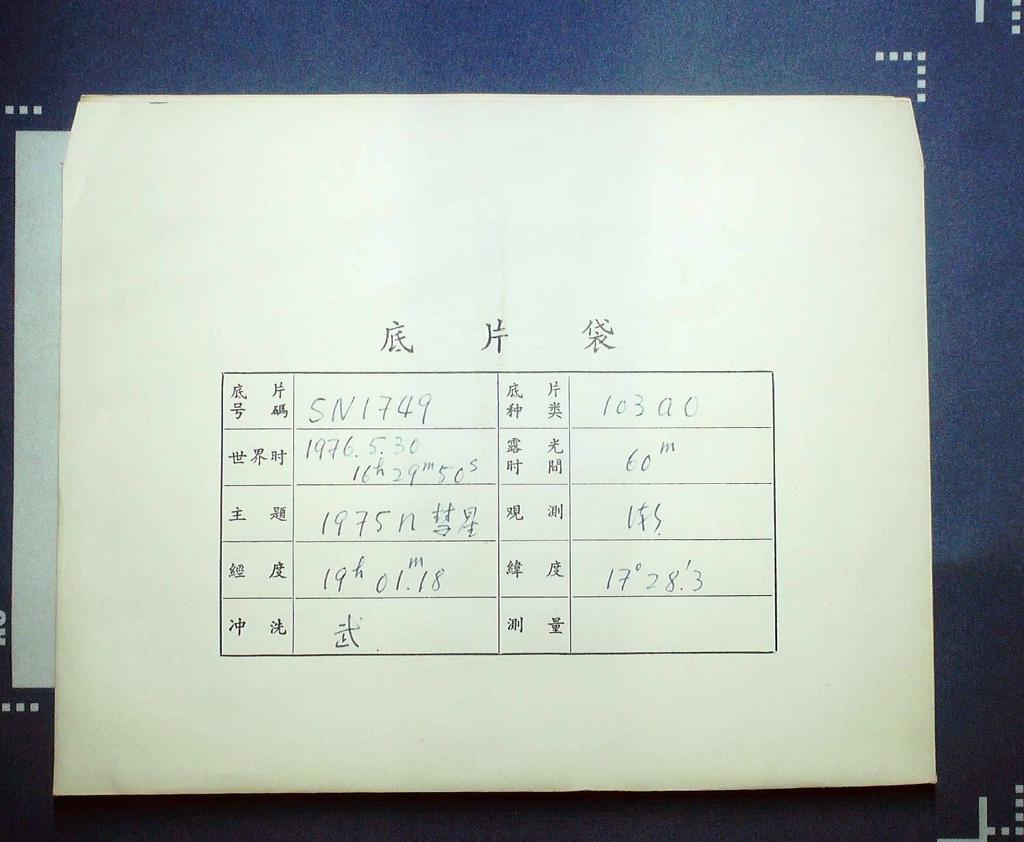 底片袋
底片号碼 SN1749 底片种类 103aO
世界时 1976.5.30 16h29m50s 露光时間 60m
主題 1975n 彗星 观測
經度 19h 01m.18 緯度 17°28'.3
冲洗 武 測量